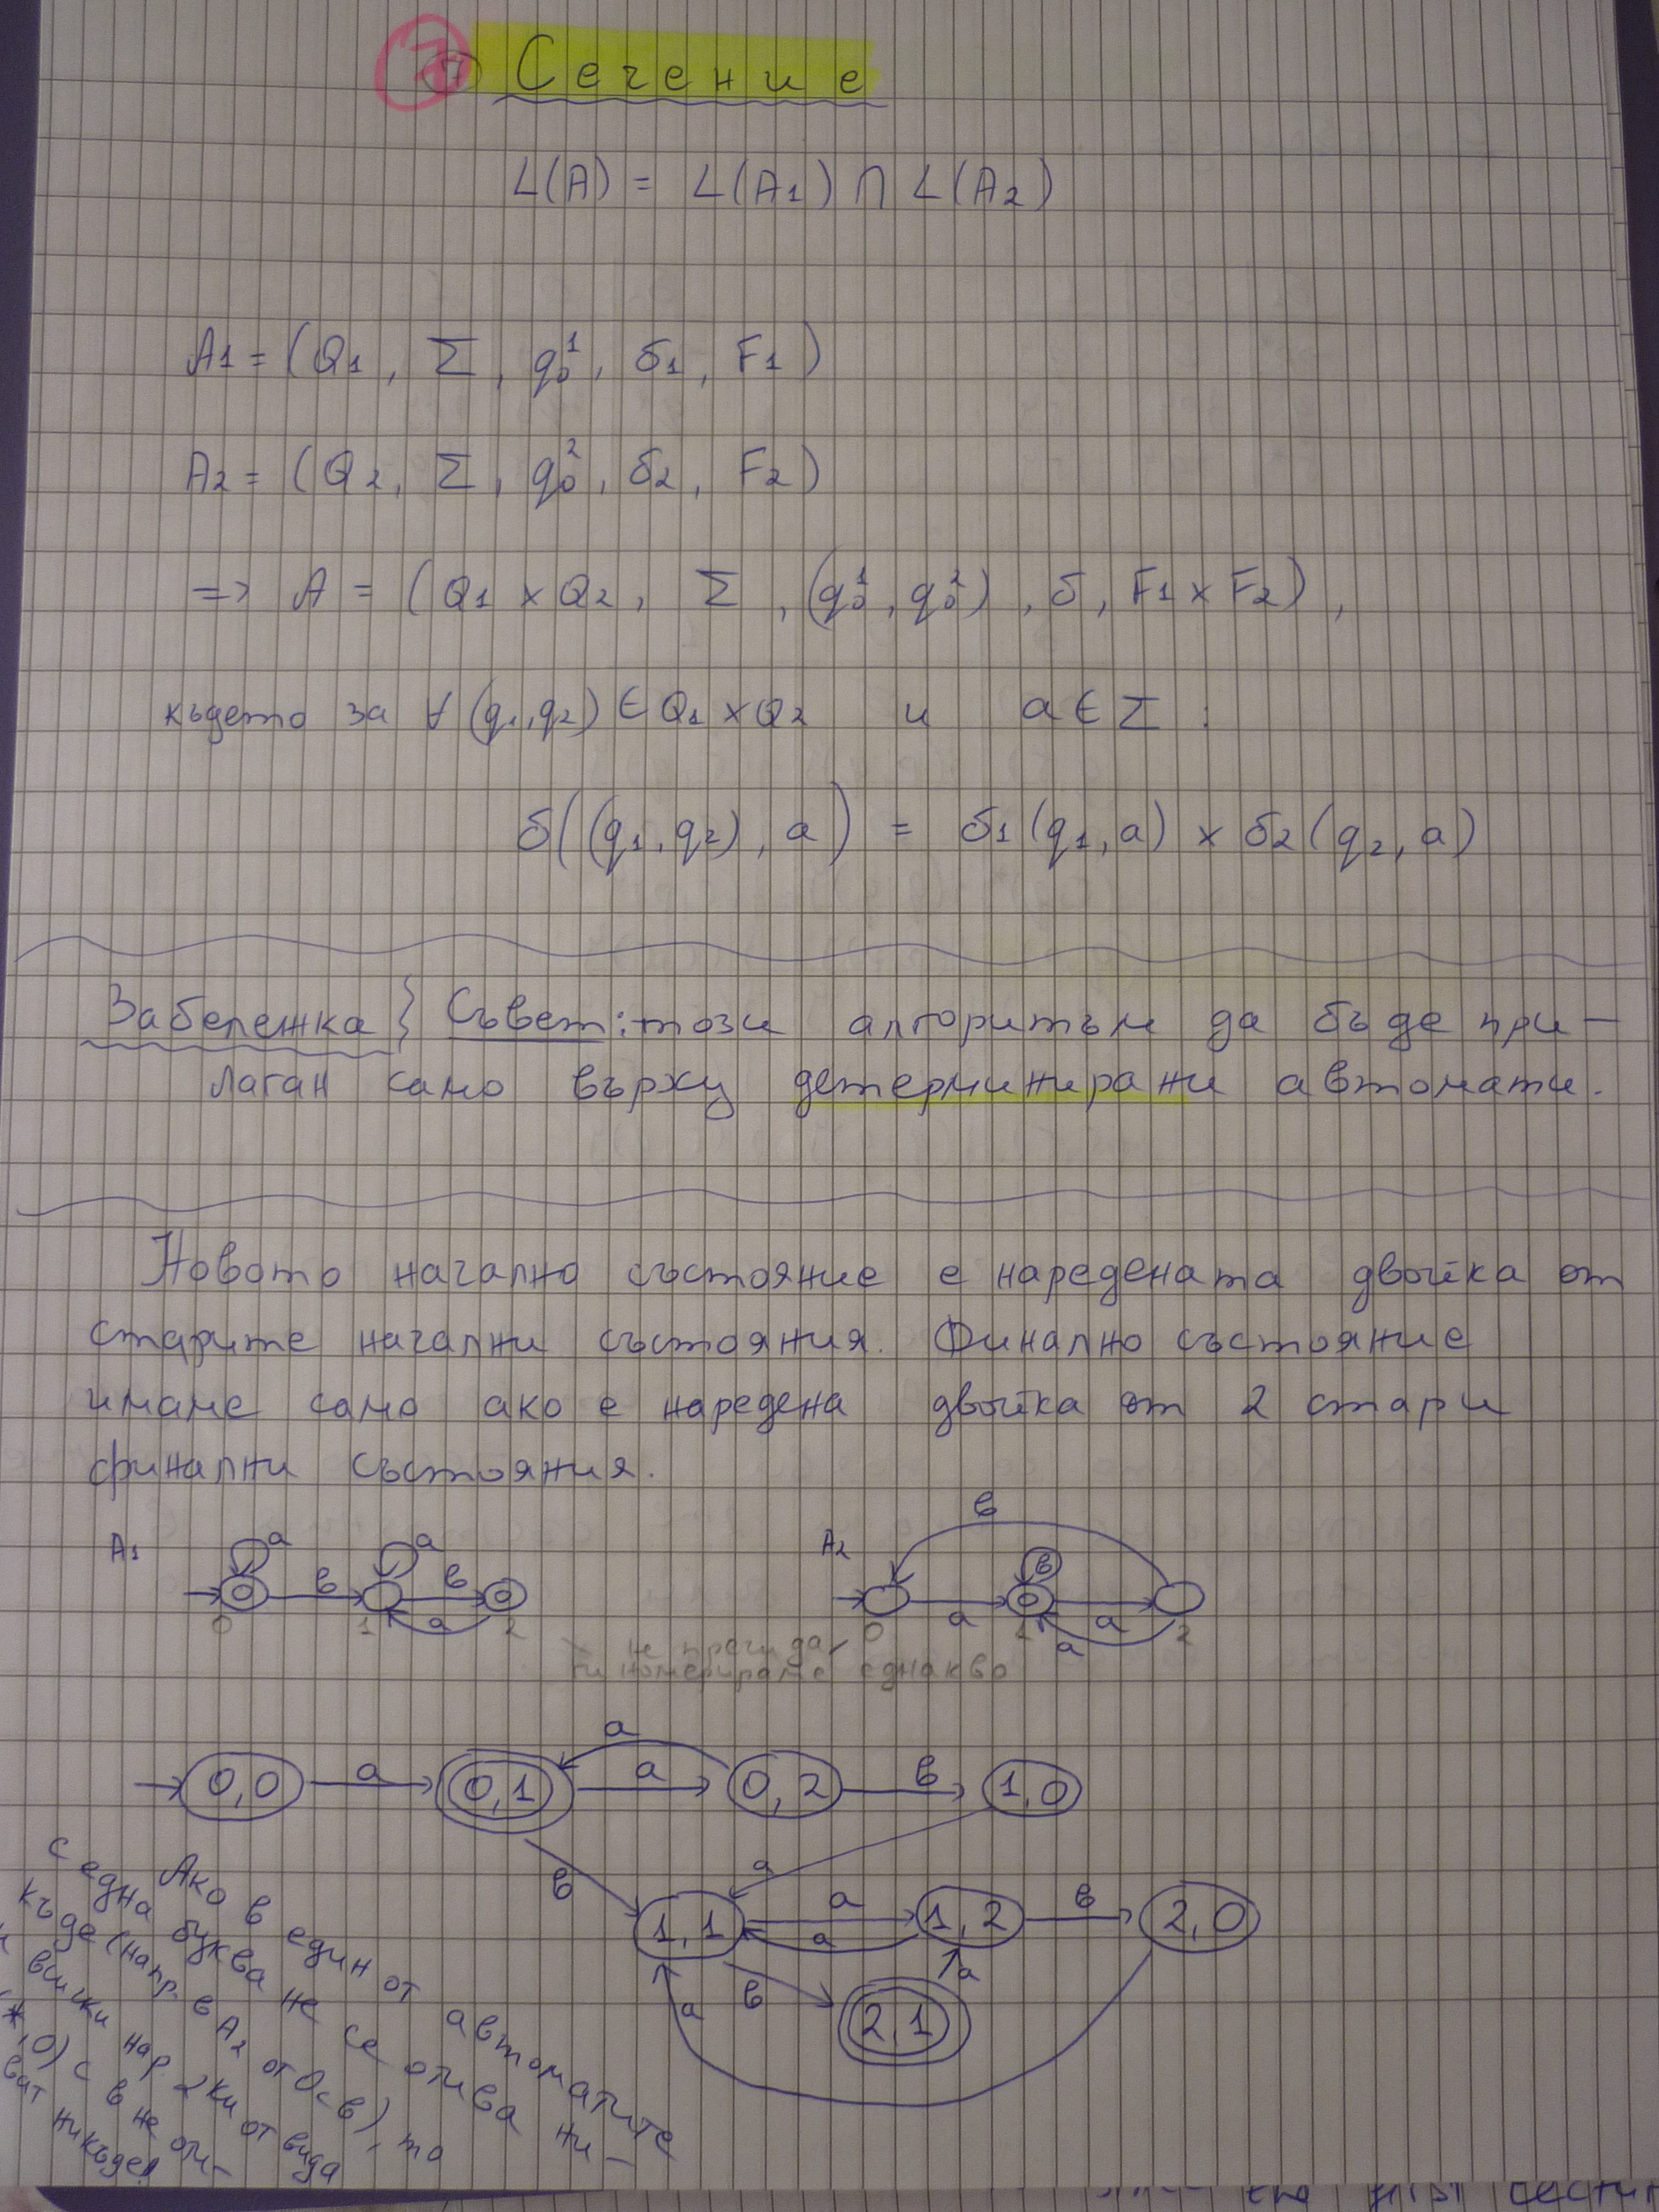 7 Сечение
L(A) = L(A1) ∩ L(A2)
A1 = (Q1, Σ, q₀¹, δ1, F1)
A2 = (Q2, Σ, q₀², δ2, F2)
=> A = (Q1 x Q2, Σ, (q₀¹, q₀²), δ, F1 x F2),
където за ∀ (q1,q2) ∈ Q1 x Q2 и a ∈ Σ :
δ((q1,q2), a) = δ1(q1,a) x δ2(q2,a)
Забележка } Съвет: този алгоритъм да бъде при-
лаган само върху детерминирани автомати.
Новото начално състояние е наредената двойка от
старите начални състояния. Финално състояние
имаме само ако е наредена двойка от 2 стари
финални състояния.
A1 a a в в a 0 1 2
A2 в в a a a 0 1 2
не пречи да
ги номерираме еднакво
0,0 a 0,1 a a 0,2 в 1,0
в a
1,1 a a 1,2 в 2,0
a в 2,1 a
Ако в един от автоматите
с една буква не се отива ни-
къде (напр. в A2 от 0 с в), то
и всички нар. 2ки от вида
(*,0) с в не оти-
ват никъде!